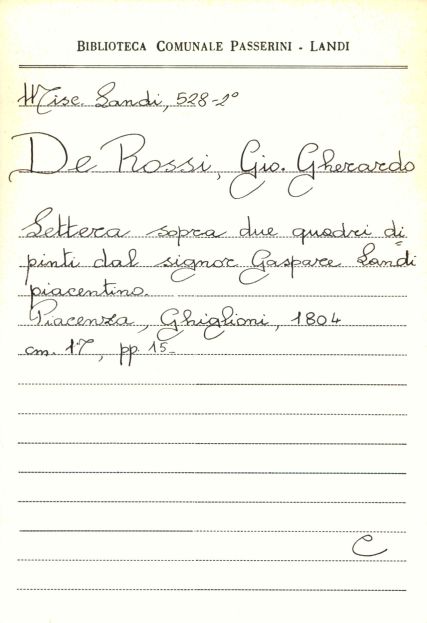 BIBLIOTECA COMUNALE PASSERINI - LANDI
Misc. Landi, 528-2°
De Rossi, Gio. Gherardo
Lettera sopra due quadri di=
pinti dal signor Gaspare Landi
piacentino.
Piacenza, Ghiglioni, 1804
cm. 17, pp. 15
C